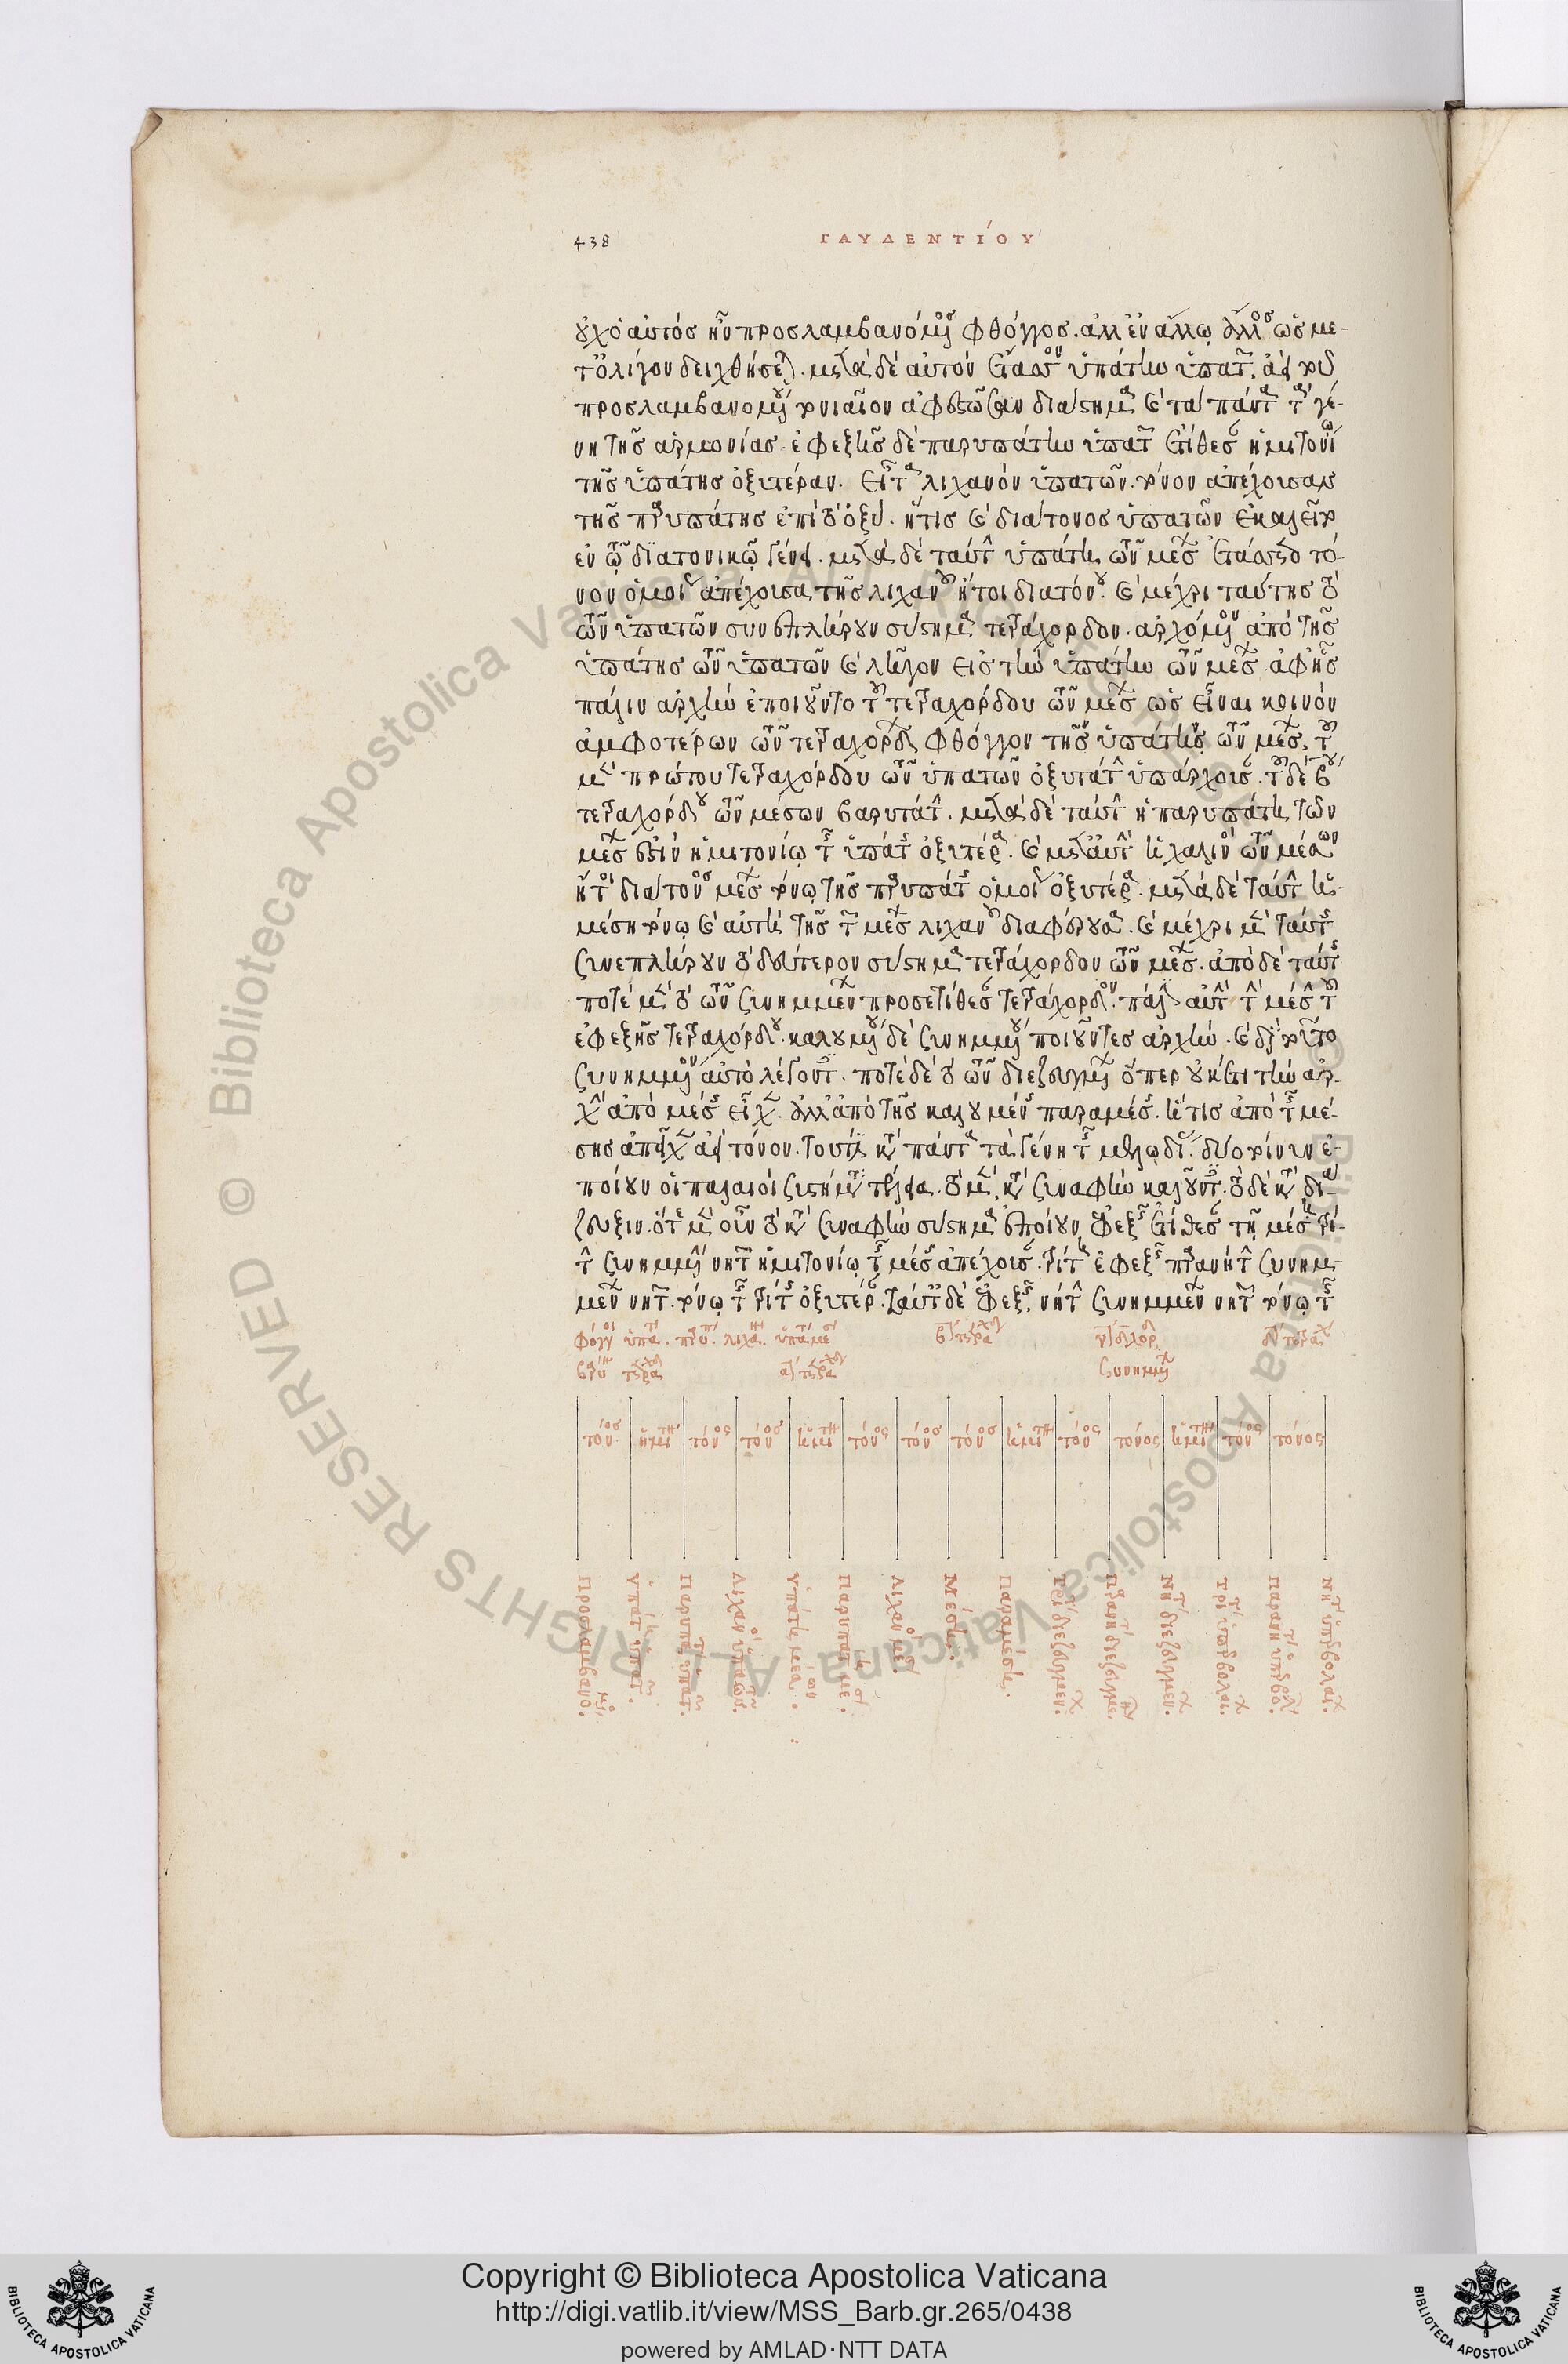 438
ΓΑΥΔΕΝΤΊΟΥ
οὐχ ὁ αὐτός ἦν προσλαμβανόμενος φθόγγος. ἀλλ ἐν ἄλλῳ ἄλλος ὡς με-
τ ὀλίγον δειχθήσεται. μετὰ δὲ αὐτὸν ἔταττον ὑπάτην ὑπατῶν. ἀεὶ τοῦ
προσλαμβανομένου τονιαῖον ἀφεστῶσαν διάστημα κατὰ πάντα τὰ γέ-
νη τῆς ἁρμονίας. ἐφεξῆς δὲ παρυπάτην ὑπατῶν ἐτίθεσαν ἡμιτονίῳ
τῆς ὑπάτης ὀξυτέραν. εἶτα λιχανὸν ὑπατῶν. τόνον ἀπέχουσαν
τῆς παρυπάτης ἐπὶ τὸ ὀξύ. ἥτις καὶ διάτονος ὑπατῶν ἐκαλεῖτο
ἐν τῷ διατονικῷ γένει. μετὰ δὲ ταύτην ὑπάτη τῶν μέσων ἐτάττετο τό-
νον ὁμοίως ἀπέχουσα τῆς λιχανοῦ ἤτοι διατόνου. καὶ μέχρι ταύτης τὸ
τῶν ὑπατῶν συνεπλήρουν σύστημα τετράχορδον. ἀρχόμενον ἀπὸ τῆς
ὑπάτης τῶν ὑπατῶν καὶ λῆγον εἰς τὴν ὑπάτην τῶν μέσων. ἀφ ἧς
πάλιν ἀρχὴν ἐποιοῦντο τοῦ τετραχόρδου τῶν μέσων ὡς εἶναι κοινὸν
ἀμφοτέρων τῶν τετραχόρδων φθόγγον τῆς ὑπάτης τῶν μέσων. τοῦ
μὲν πρώτου τετραχόρδου τῶν ὑπατῶν ὀξυτάτην ὑπάρχουσαν. τοῦ δὲ β
τετραχόρδου τῶν μέσων βαρυτάτην. μετὰ δὲ ταύτην ἡ παρυπάτη τῶν
μέσων ἐστὶν ἡμιτονίῳ τῆς ὑπάτης ὀξυτέρα. καὶ μετ αὐτὴν ἡ λιχανὸς τῶν μέσων
ἤτοι διάτονος μέσων τόνῳ τῆς παρυπάτης ὁμοίως ὀξυτέρα. μετὰ δὲ ταύτην ἡ
μέση τόνῳ καὶ αὐτὴ τῆς τῶν μέσων λιχανοῦ διαφέρουσα. καὶ μέχρι μὲν ταύτης
συνεπλήρουν τὸ δεύτερον σύστημα τετράχορδον τῶν μέσων. ἀπὸ δὲ ταύτης
ποτὲ μὲν τὸ τῶν συνημμένων προσετίθεσαν τετράχορδον. πάλιν αὐτὴν τὴν μέσην τοῦ
ἐφεξῆς τετραχόρδου. καλουμένου δὲ συνημμένου ποιοῦντες ἀρχήν. καὶ διὰ τοῦτο
συνημμένον αὐτὸ λέγοντες. ποτὲ δὲ τὸ τῶν διεζευγμένων ὅπερ οὐκ ἔτι τὴν ἀρ-
χὴν ἀπὸ μέσης εἶχεν. ἀλλ ἀπὸ τῆς καλουμένης παραμέσης. ἥτις ἀπὸ τῆς μέ-
σης ἀπεῖχεν ἀεὶ τόνον. τουτέστι κατὰ πάντα τὰ γένη τῆς μελῳδίας. δύο τοίνυν ἐ-
ποίουν οἱ παλαιοὶ συστήματα τέλεια. τὸ μὲν κατὰ συναφὴν καλοῦντες. τὸ δὲ κατὰ διά-
ζευξιν. ὅτε μὲν οὖν τὸ κατὰ συναφὴν σύστημα ἐποίουν, ἐφεξῆς ἐτίθεσαν τῇ μέσῃ τρί-
την συνημμένων νητῶν ἡμιτονίῳ τῆς μέσης ἀπέχουσαν. τρίτη ἐφεξῆς παρανήτην συνημ-
μένων νητῶν. τόνῳ τῆς τρίτης ὀξυτέραν. ταύτῃ δὲ ἐφεξῆς. νήτην συνημμένων νητῶν τόνῳ τῆς
τόνος ἡμιτ τόνος τόνος ἡμιτ τόνος τόνος τόνος ἡμιτ τόνος τόνος ἡμιτ τόνος τόνος
Προσλαμβανόμενος.
Ὑπάτη ὑπατῶν.
Παρυπάτη ὑπατῶν.
Λιχανὸς ὑπατῶν.
Ὑπάτη μέσων.
Παρυπάτη μέσων.
Λιχανὸς μέσων.
Μέση.
Παραμέση.
Τρίτη διεζευγμένων.
Παρανήτη διεζευγμένων.
Νήτη διεζευγμένων.
Τρίτη ὑπερβολαίων.
Παρανήτη ὑπερβολαίων.
Νήτη ὑπερβολαίων.
Copyright © Biblioteca Apostolica Vaticana
http://digi.vatlib.it/view/MSS_Barb.gr.265/0438
powered by AMLAD·NTT DATA